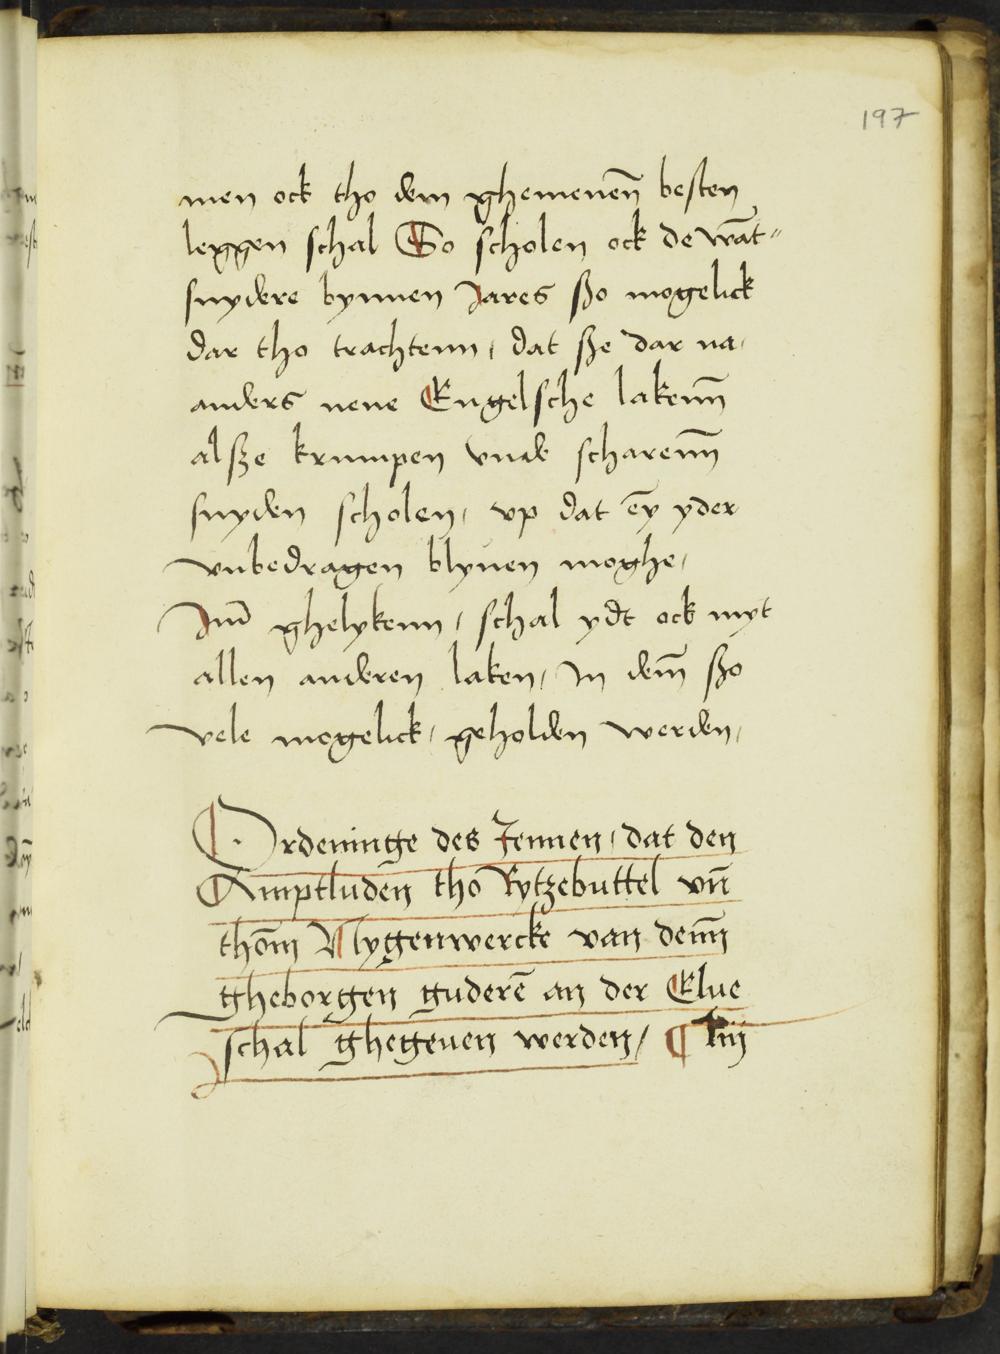 197
men ock tho dem ghemenen̄ besten
leggen schal So scholen ock de wāt-
snydere bynnen Jares sßo mogelick
dar tho trachtenn, dat sße dar na
anders nene Engelsche lakenn̄
alsße krumpen vnde scharenn̄
snyden scholen, vp dat eȳ yder
vnbedragen blyuen moghe,
Jm̄ ghelykenn, schal ydt ock myt
allen anderen laken, In dem̄ sßo
vele mogelick, geholden werden,
Ordeninge des Jennen, dat den
Amptluden tho Rytzebuttel vn̄
thom̄ Nygenwercke van denn̄
gheborgen guderē an der Elue
schal ghegeuen werden,